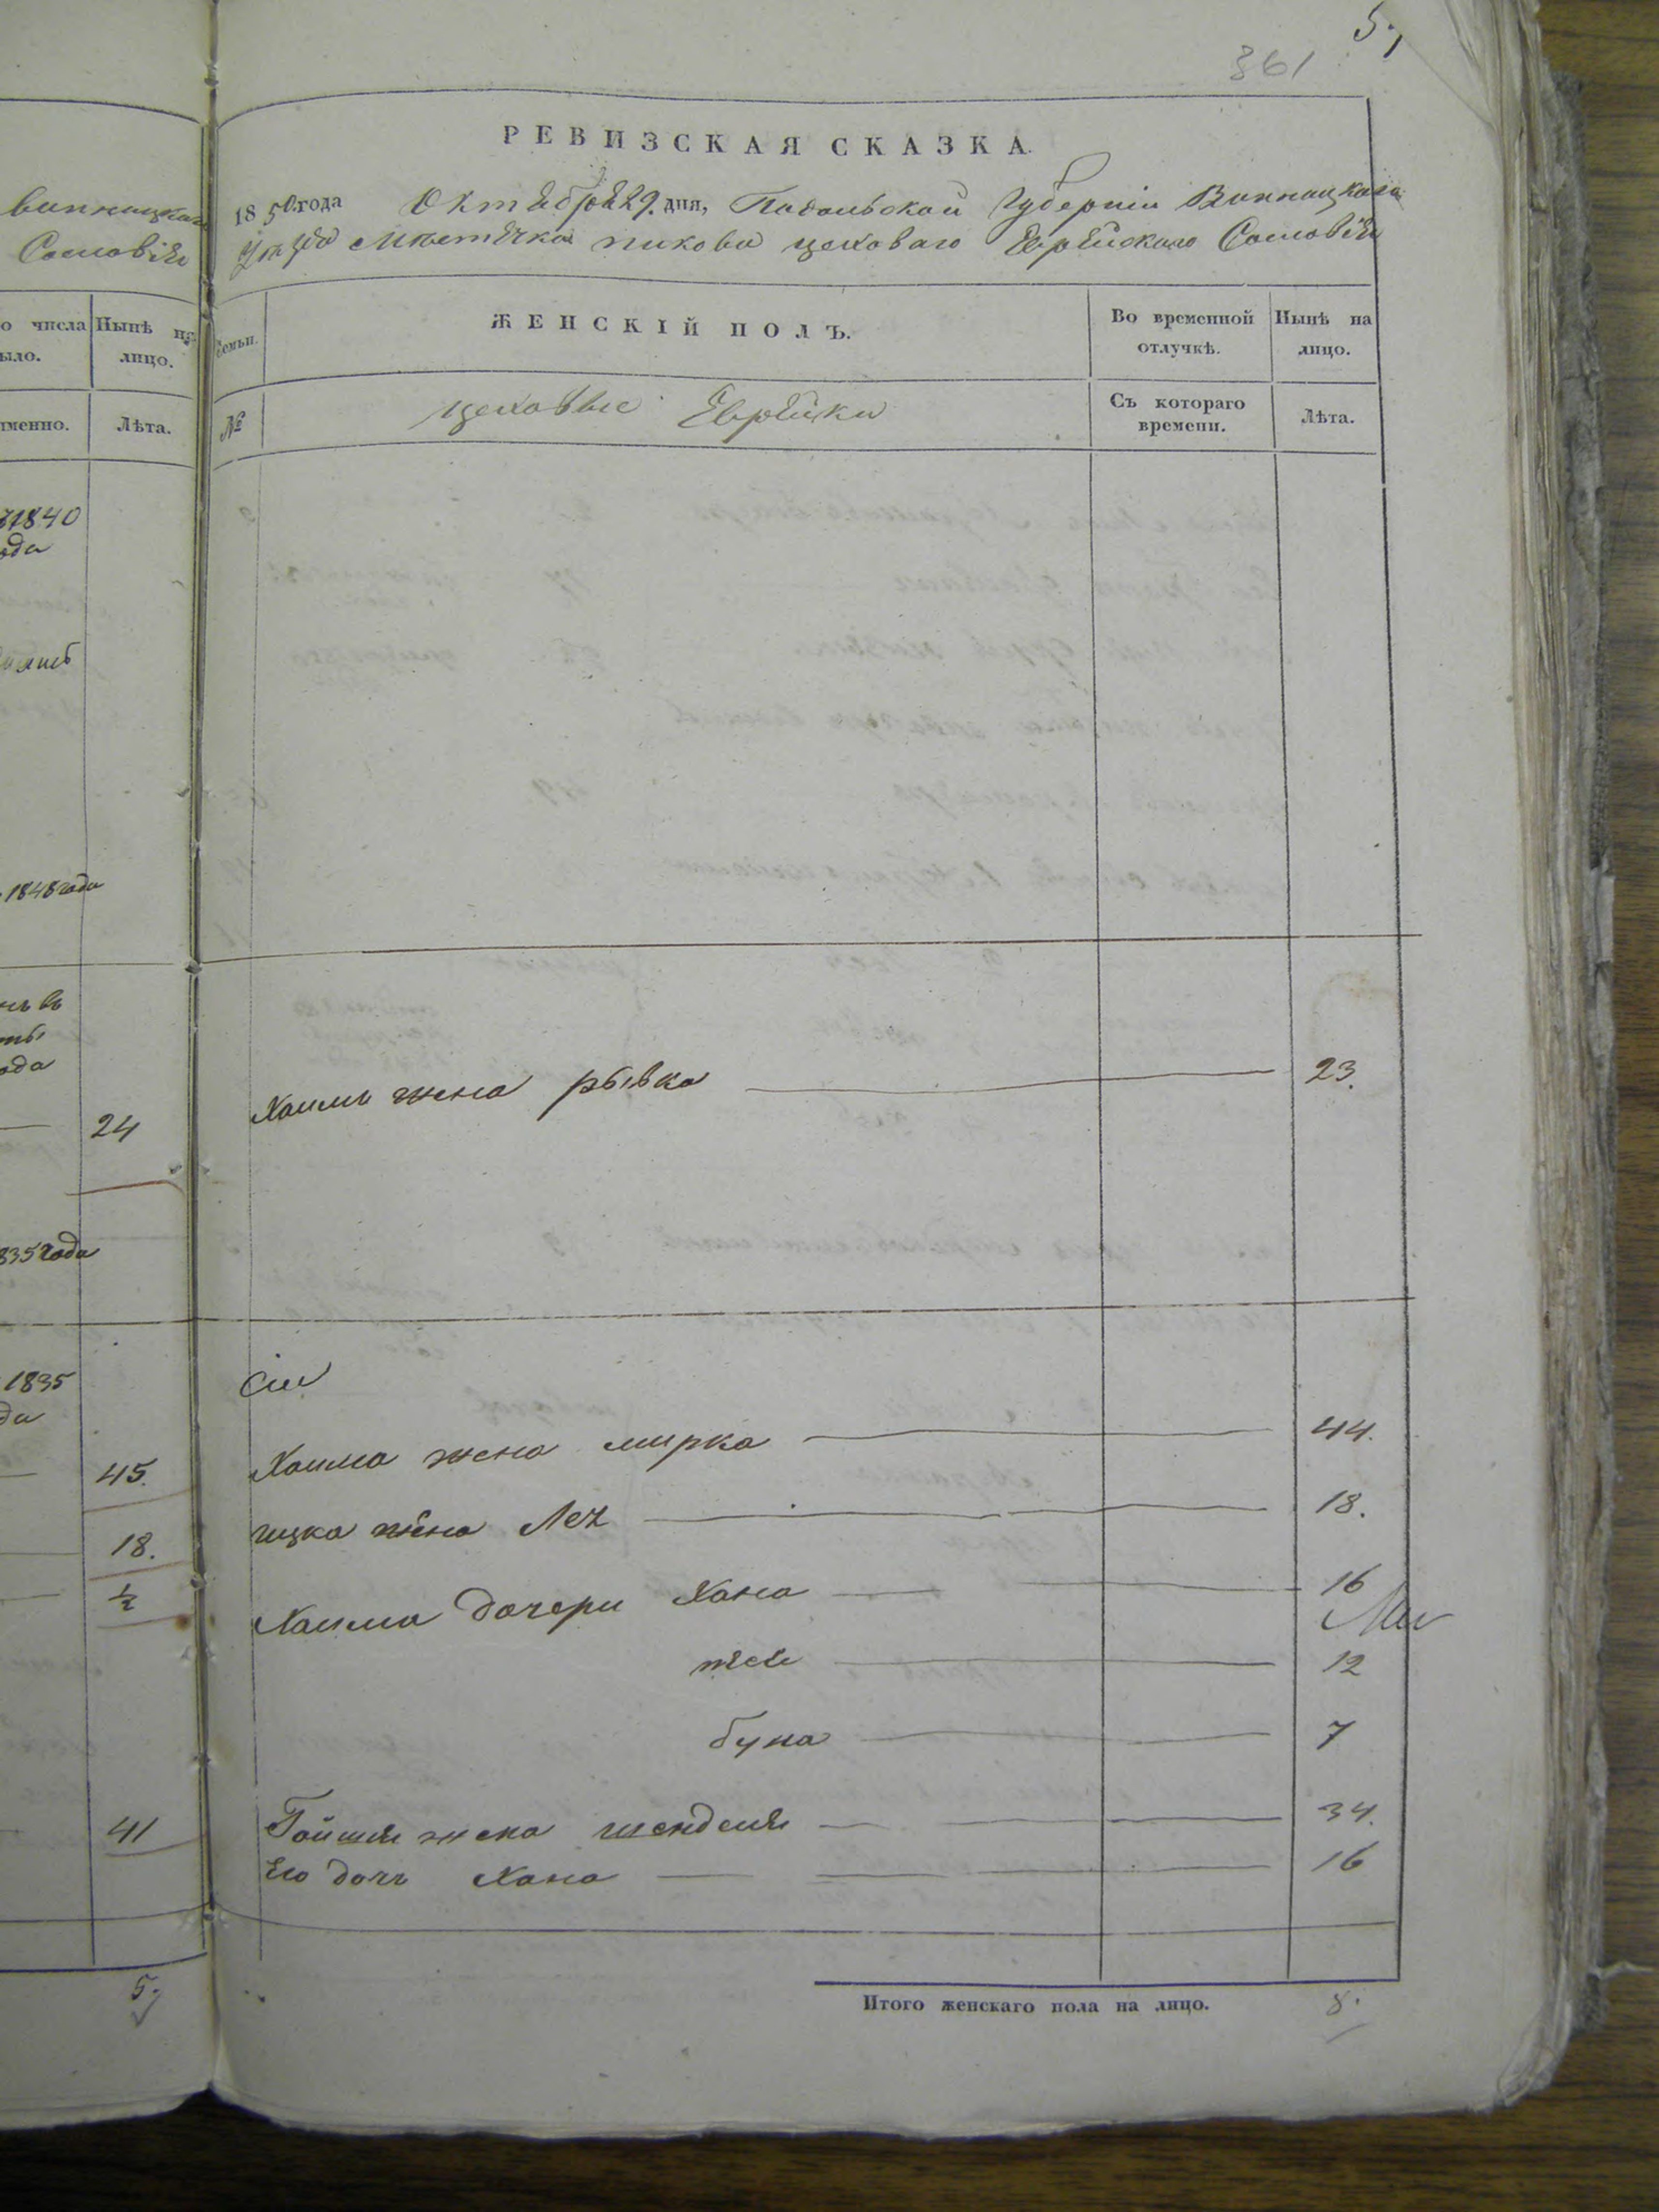 5.
361
РЕВИЗСКАЯ СКАЗКА.
1850 года Октября 29. дня, Подольской Губерніи Винницкаго
Уѣзда Мѣстечка пикова цеховаго Еврейскаго Сословія
Винницкаго
Сословія
о числа
ыло.
Нынѣ на
лицо.
Семьи.
ЖЕНСКІЙ ПОЛЪ.
Во временной
отлучкѣ.
Нынѣ на
лицо.
именно.
Лѣта.
№
цеховые Еврейки
Съ котораго
времени.
Лѣта.
1840
ода
1848 года
ода
24
Хаима жена рывка 23.
835 года
1835
да
45.
Хаима жена мирка 44.
18.
ицка жена Лея 18.
½
Хаима дочери Хана 16
12
буна 7
41
Гойшія жена шенделя 34.
Его дочь Хана 16
5.
Итого женскаго пола на лицо. 8.